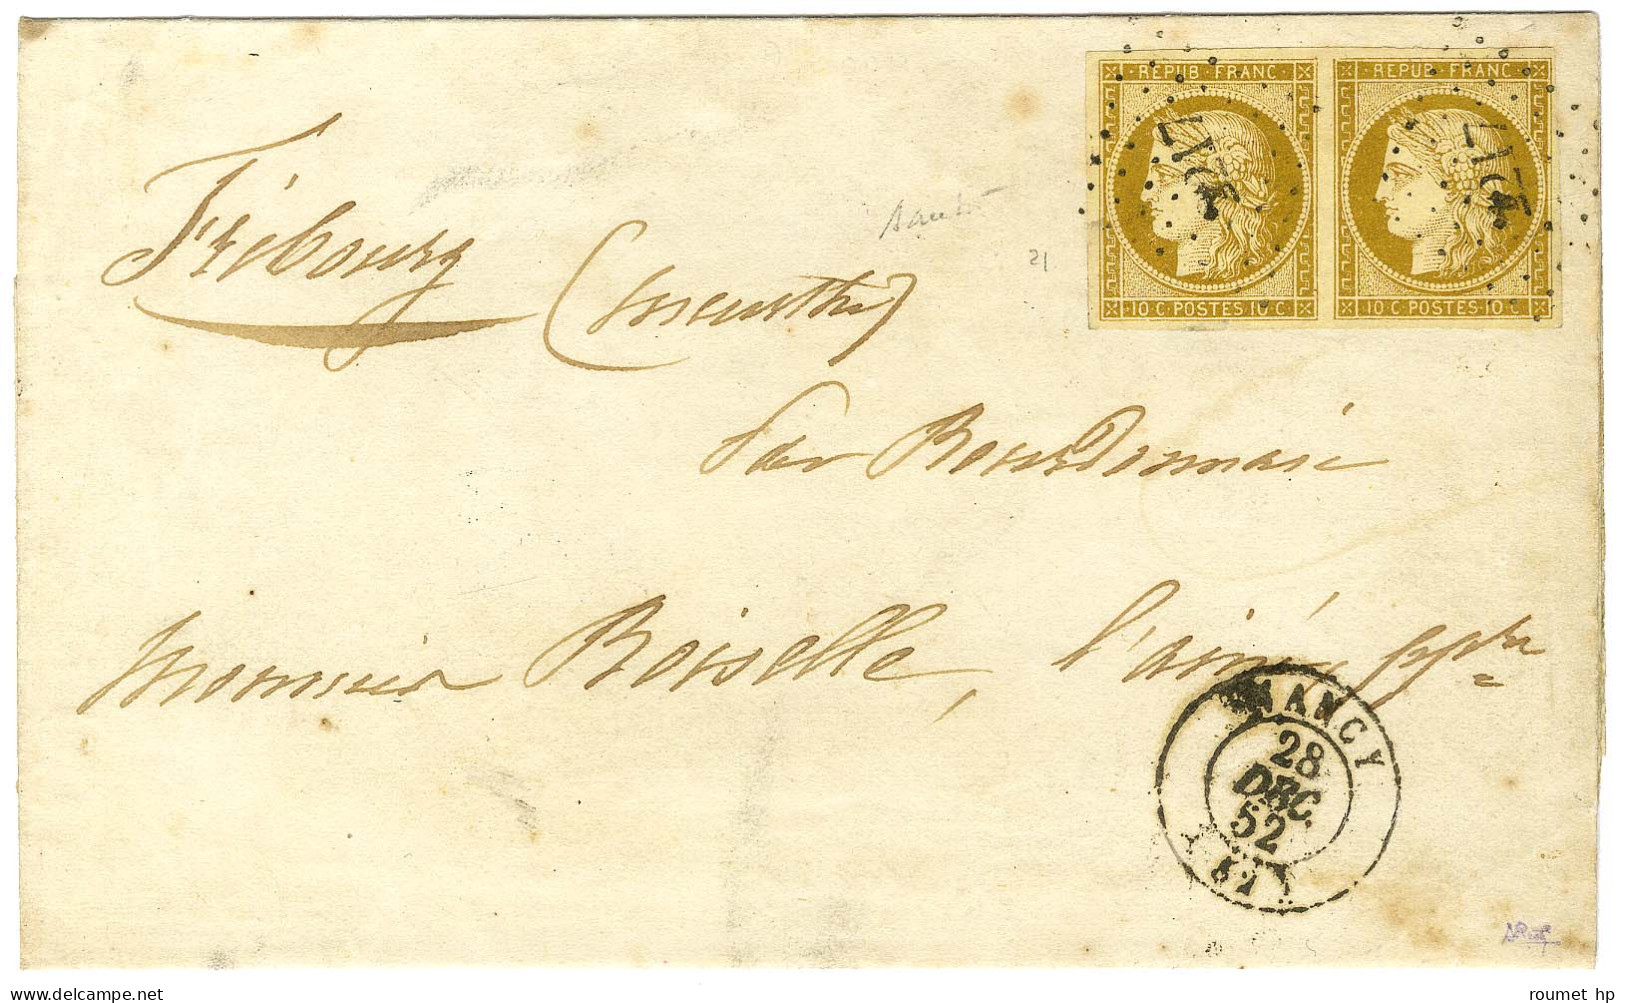 REPUB FRANC REPUB FRANC
2217 2217
10 C · POSTES · 10 C 10 C · POSTES · 10 C
21
Fribourg (meurthe)
par Bourdonnaie
Monsieur Boiselle, l'ainé, pptre
NANCY
28
DEC.
52
roumet hp
delcampe.net